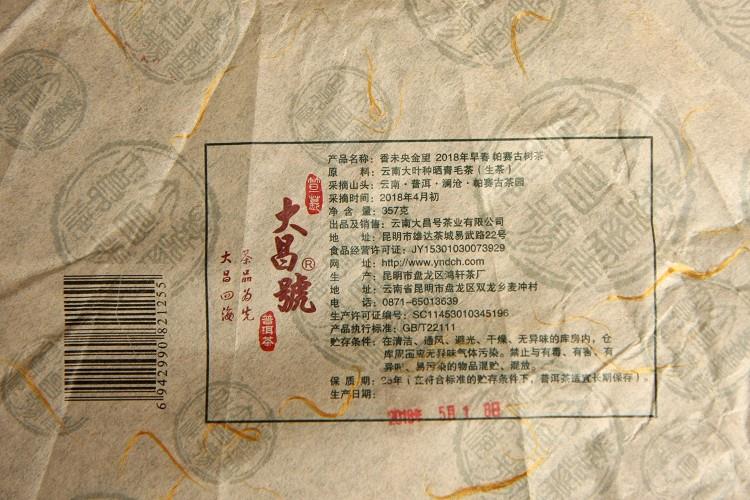 产品名称：香未央金望 2018年早春 帕赛古树茶
原　　料：云南大叶种晒青毛茶（生茶）
采摘山头：云南·普洱·澜沧·帕赛古茶园
采摘时间：2018年4月初
净 含 量：357克
出品及销售：云南大昌号茶业有限公司
地　　址：昆明市雄达茶城易武路22号
食品经营许可证：JY15301030073929
网　　址：http://www.yndch.com
生　　产：昆明市盘龙区鸿轩茶厂
地　　址：云南省昆明市盘龙区双龙乡麦冲村
电　　话：0871-65013639
生产许可证编号：SC11453010345196
产品执行标准：GB/T22111
贮存条件：在清洁、通风、避光、干燥、无异味的库房内，仓
库周围应无异味气体污染。禁止与有毒、有害、有
异味、易污染的物品混贮、混放。
保 质 期：25年（在符合标准的贮存条件下，普洱茶适宜长期保存）。
生产日期：
2018年 5月1 8日
大昌號®
普洱茶
茶品为先
大昌四海
6942990821255